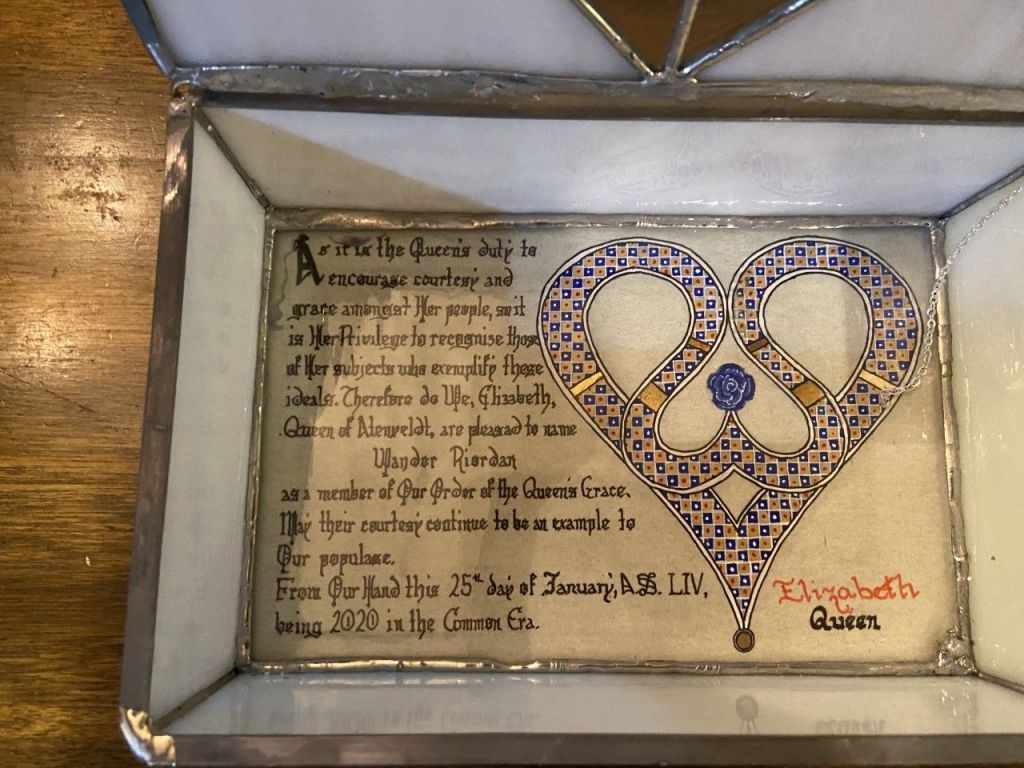 As it is the Queen's duty to
encourage courtesy and
grace amongst Her people, so it
is Her Privilege to recognise those
of Her subjects who exemplify these
ideals. Therefore do We, Elizabeth,
Queen of Atenveldt, are pleased to name
Wander Riordan
as a member of Our Order of the Queen's Grace.
May their courtesy continue to be an example to
Our populace.
From Our Hand this 25th day of January, A.S. LIV,
being 2020 in the Common Era.
Elizabeth
Queen